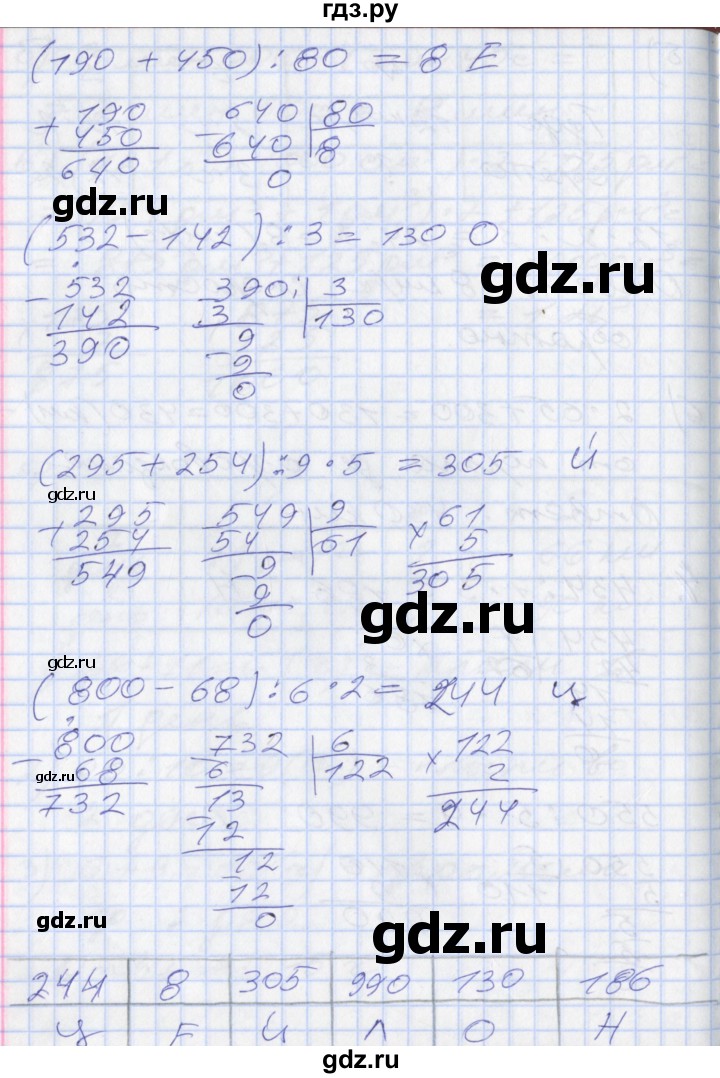 гдз.ру
(190 + 450) : 80 = 8 Е
+ 190 - 640 | 80
450 640 8
640 0
gdz.ru
(532 - 142) : 3 = 130 О
gdz.ru
- 532 - 390 | 3
142 3 130
390 - 9
9
0
(295 + 254) : 9 · 5 = 305 Й
gdz.ru
+ 295 - 549 | 9 × 61
254 54 61 5
549 - 9 305
9
0
gdz.ru
gdz.ru
(800 - 68) : 6 · 2 = 244 ц
gdz.ru
- 800 - 732 | 6 × 122
68 6 122 2
732 - 13 244
12
- 12
12
0
gdz.ru
gdz.ru
244 8 305 990 130 186
Ц Е Й Л О Н
gdz.ru